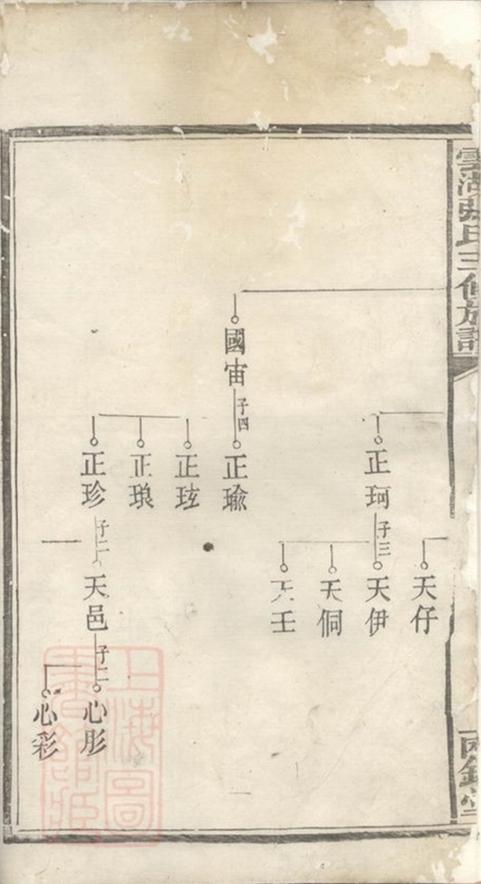 雲湖張氏三修族譜
國宙
子四
正瑜
正玹
正琅
正珍
子二
天邑
子二
心彤
心彩
正珂
子三
天伊
天侗
天壬
天仔
上海圖書館藏